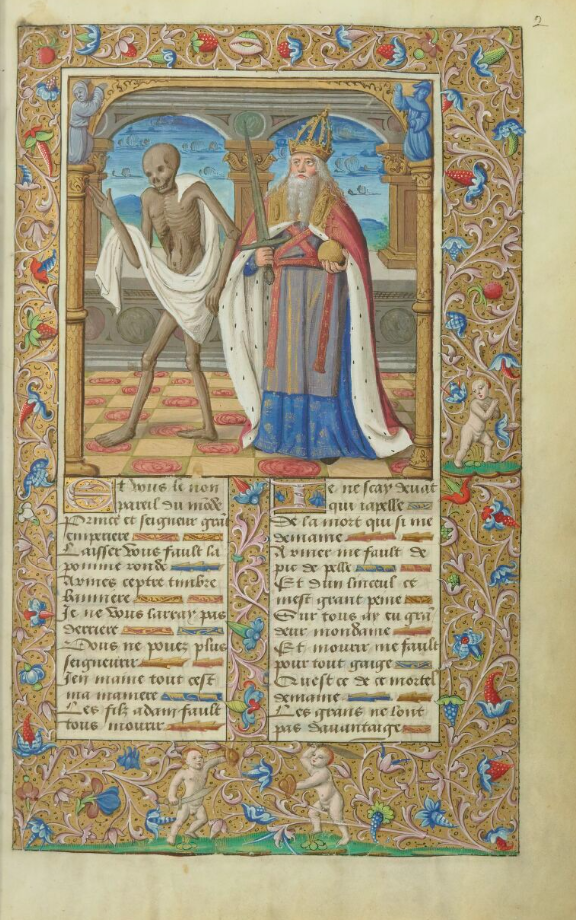 2
Et vous le non
pareil du mōde
Prince et seigneur grāt
emperiere
Laisser vous fault la
pomme ronde
Armes ceptre timbre
banniere
Je ne vous larray pas
derriere
Vous ne pouez plus
seigneurir
Jen maine tout cest
ma maniere
Les filz adam fault
tous mourir
Je ne scay deuāt
qui iapelle
De la mort qui si me
demaine
Armer me fault de
pic de pelle
Et dun linceul ce
mest grant peine
Sur tous ay eu grā
deur mondaine
Et mourir me fault
pour tout gaige
Quest ce de ce mortel
demaine
Les grans ne lont
pas dauantaige